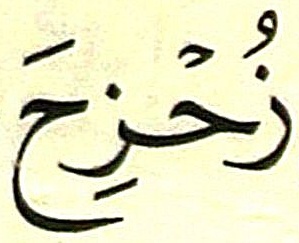 زُحْزِحَ